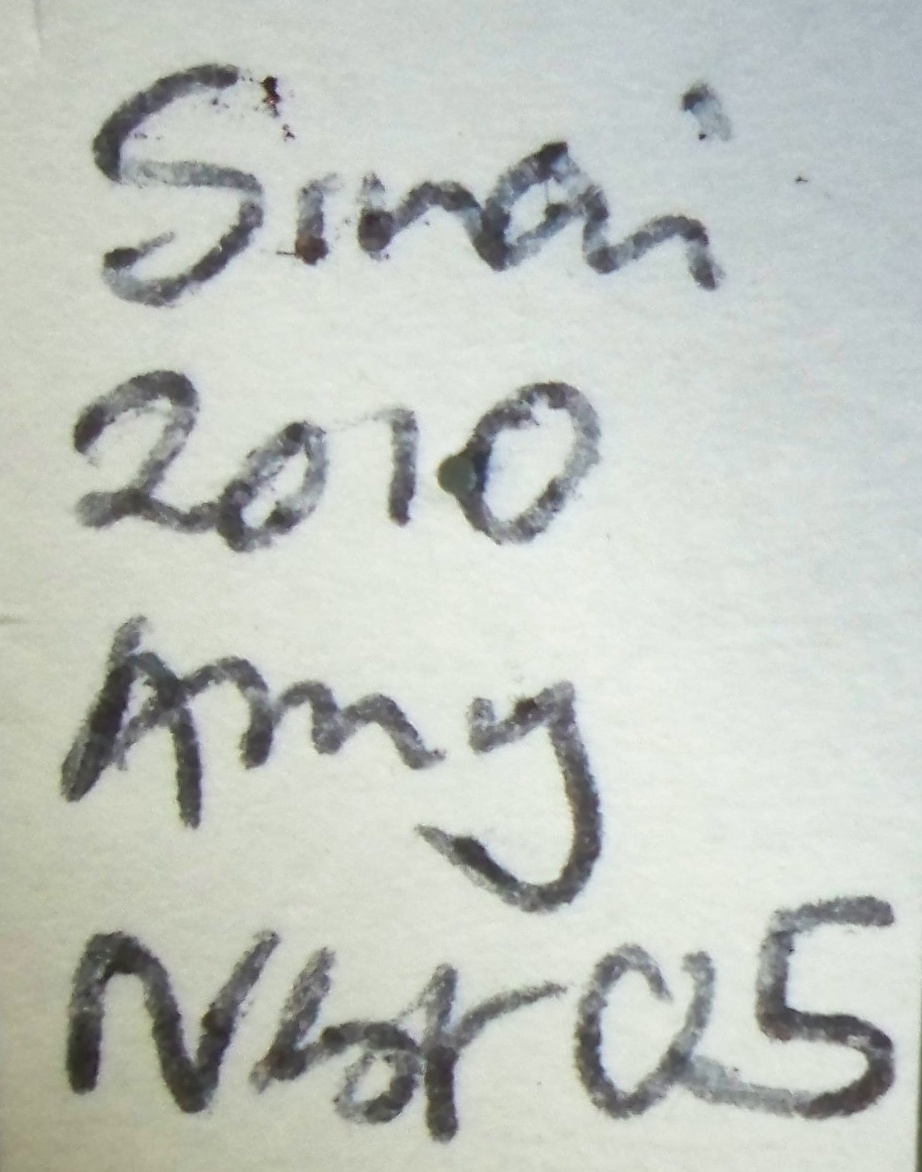 Sinai
2010
Amy
Nbr 05